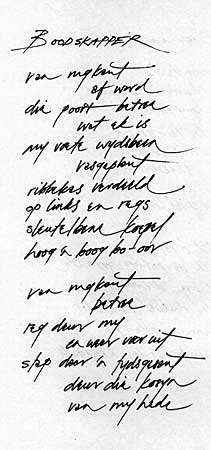 BOODSKAPPER
van rugkant
af word
die poort betree
wat ek is
my voete wydsbeen
vasgeplant
ribbekas verdeeld
op links en regs
sleutelbene koepel
hoog 'n boog bo-oor
van rugkant
betree
reg deur my
en weer voor uit
stap deur 'n
deur die kosyn
van my hede